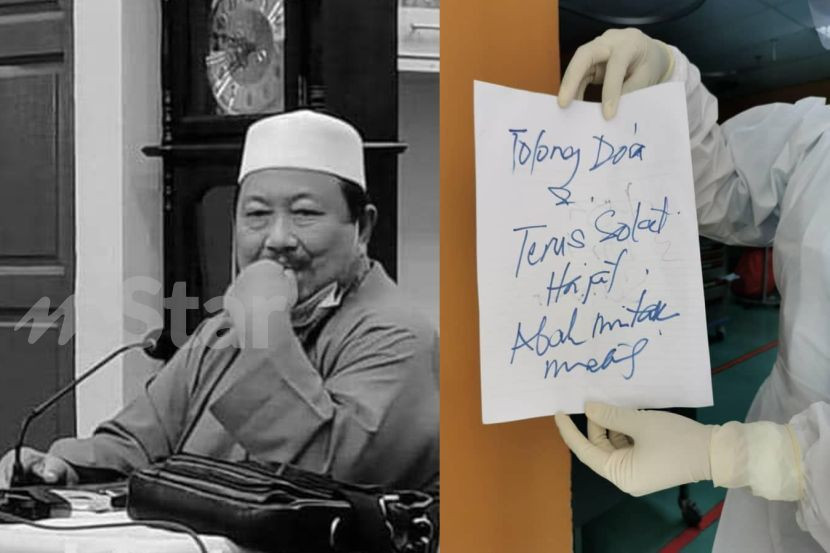 mStar
Tolong Doa
&.
Terus Solat
Hajat.
Abah minta